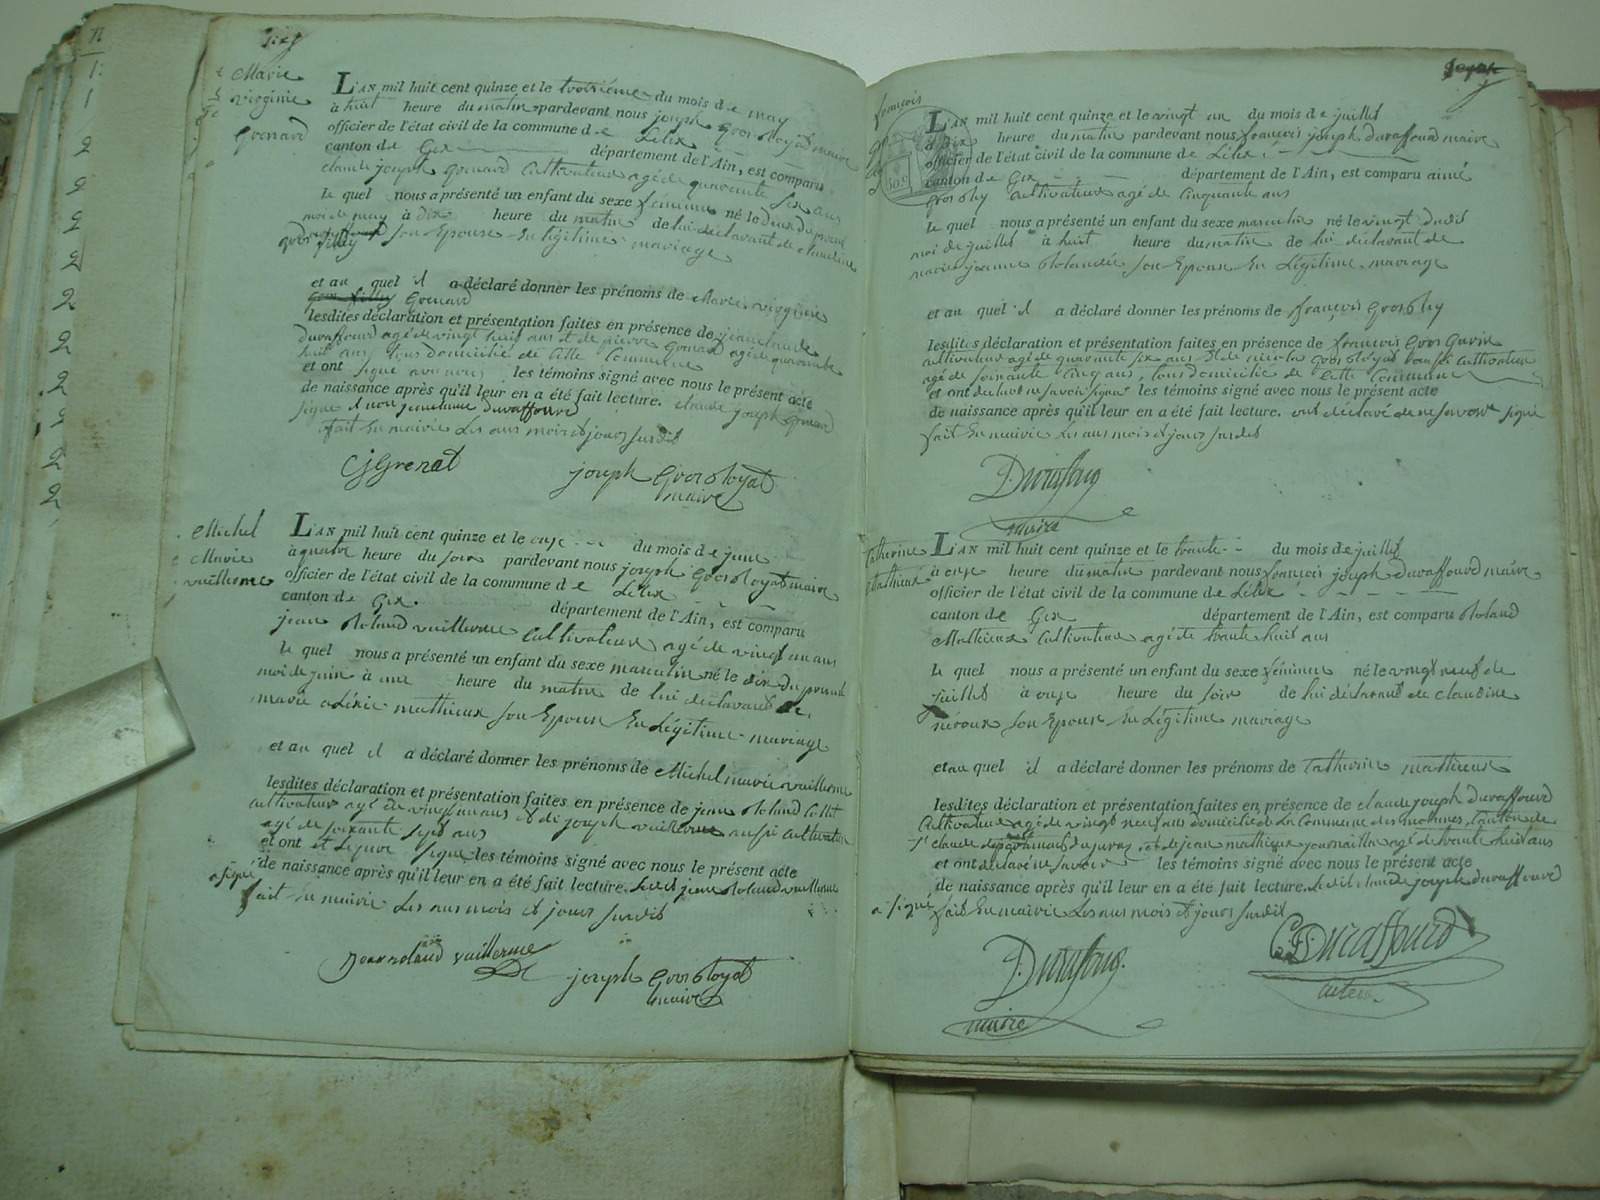 Marie
virginie
Grenard
L'AN mil huit cent quinze et le troisième du mois de may
à huit heure du matin pardevant nous joseph Gros Royat maire
officier de l'état civil de la commune de Lélex
canton de Gex département de l'Ain, est comparu
claude joseph Grenard Cultivateur agé de quarante six ans
le quel nous a présenté un enfant du sexe feminin né le deux du présent
moi de may à dix heure du matin de lui déclarant de claudine
gros filley son Epouse En légitime mariage
et au quel il a déclaré donner les prénoms de Marie virginie
Grenard
lesdites déclaration et présentation faites en présence de jean claude
duraffourd agé de vingt huit ans et de pierre Grenard agé de quarante
huit ans tous domicilié de cette Commune
et ont signé avec nous les témoins signé avec nous le présent acte
de naissance après qu'il leur en a été fait lecture. claude joseph Grenard
signé et non jean claude duraffourd
fait En mairie Les ans mois et jours susdit
CJGrenat joseph Gros Royat
maire
Michel
Marie
vuillerme
L'AN mil huit cent quinze et le onze du mois de juin
à quatre heure du soir pardevant nous joseph Gros Royat maire
officier de l'état civil de la commune de Lélex
canton de Gex. département de l'Ain, est comparu
jean Roland vuillerme Cultivateur agé de vingt un ans
le quel nous a présenté un enfant du sexe masculin né le dix du présent
moi de juin à une heure du matin de lui déclarant de
marie alérie mathieux son Epouse En Légitime mariage
et au quel il a déclaré donner les prénoms de Michel marie vuillerme
lesdites déclaration et présentation faites en présence de jean Roland
cultivateur agé de vingt un ans et de joseph vuillerme aussi cultivateur
agé de soixante sept ans
et ont signé les témoins signé avec nous le présent acte
de naissance après qu'il leur en a été fait lecture. ledit jean Roland vuillerme
a signé fait En mairie Les ans mois et jours susdit
Jean roland vuillerme joseph Gros Royat
maire
françois
309
L'AN mil huit cent quinze et le vingt un du mois de juillet
à dix heure du matin pardevant nous françois joseph duraffourd maire
officier de l'état civil de la commune de Lélex
canton de Gex département de l'Ain, est comparu aimé
Grosthy cultivateur agé de cinquante ans
le quel nous a présenté un enfant du sexe masculin né le vingt dudit
moi de juillet à huit heure du matin de lui déclarant de
marie jeanne Rolandée son Epouse En Légitime mariage
et au quel il a déclaré donner les prénoms de françois Grosthy
lesdites déclaration et présentation faites en présence de françois Gros Gurin
cultivateur agé de quarante six ans et de nicolas Gros Royat aussi cultivateur
agé de soixante cinq ans, tous domicilié de cette Commune
et ont déclaré ne savoir signé les témoins signé avec nous le présent acte
de naissance après qu'il leur en a été fait lecture. ont déclaré de ne savoir signé
fait En mairie Les ans mois et jours susdit
Durafourg
maire
Catherine
Mathieux
L'AN mil huit cent quinze et le trante du mois de juillet
à onze heure du matin pardevant nous françois joseph duraffourd maire
officier de l'état civil de la commune de Lélex
canton de Gex département de l'Ain, est comparu Roland
Mathieux Cultivateur agé de trante huit ans
le quel nous a présenté un enfant du sexe féminin né le vingt neuf de
juillet à onze heure du soir de lui déclarant de claudine
nicoux son Epouse En Légitime mariage
et au quel il a déclaré donner les prénoms de Catherine mathieux
lesdites déclaration et présentation faites en présence de claude joseph duraffourd
Cultivateur agé de vingt neuf ans domicilié de La Commune des molunes, Canton de
st claude département du jura, et de jean mathieux journaillé agé de trante huit ans
et ont déclaré ne savoir les témoins signé avec nous le présent acte
de naissance après qu'il leur en a été fait lecture. ledit claude joseph duraffourd
a signé fait En mairie Les ans mois et jours susdit
Durafourg. C.J. Duraffourd
maire